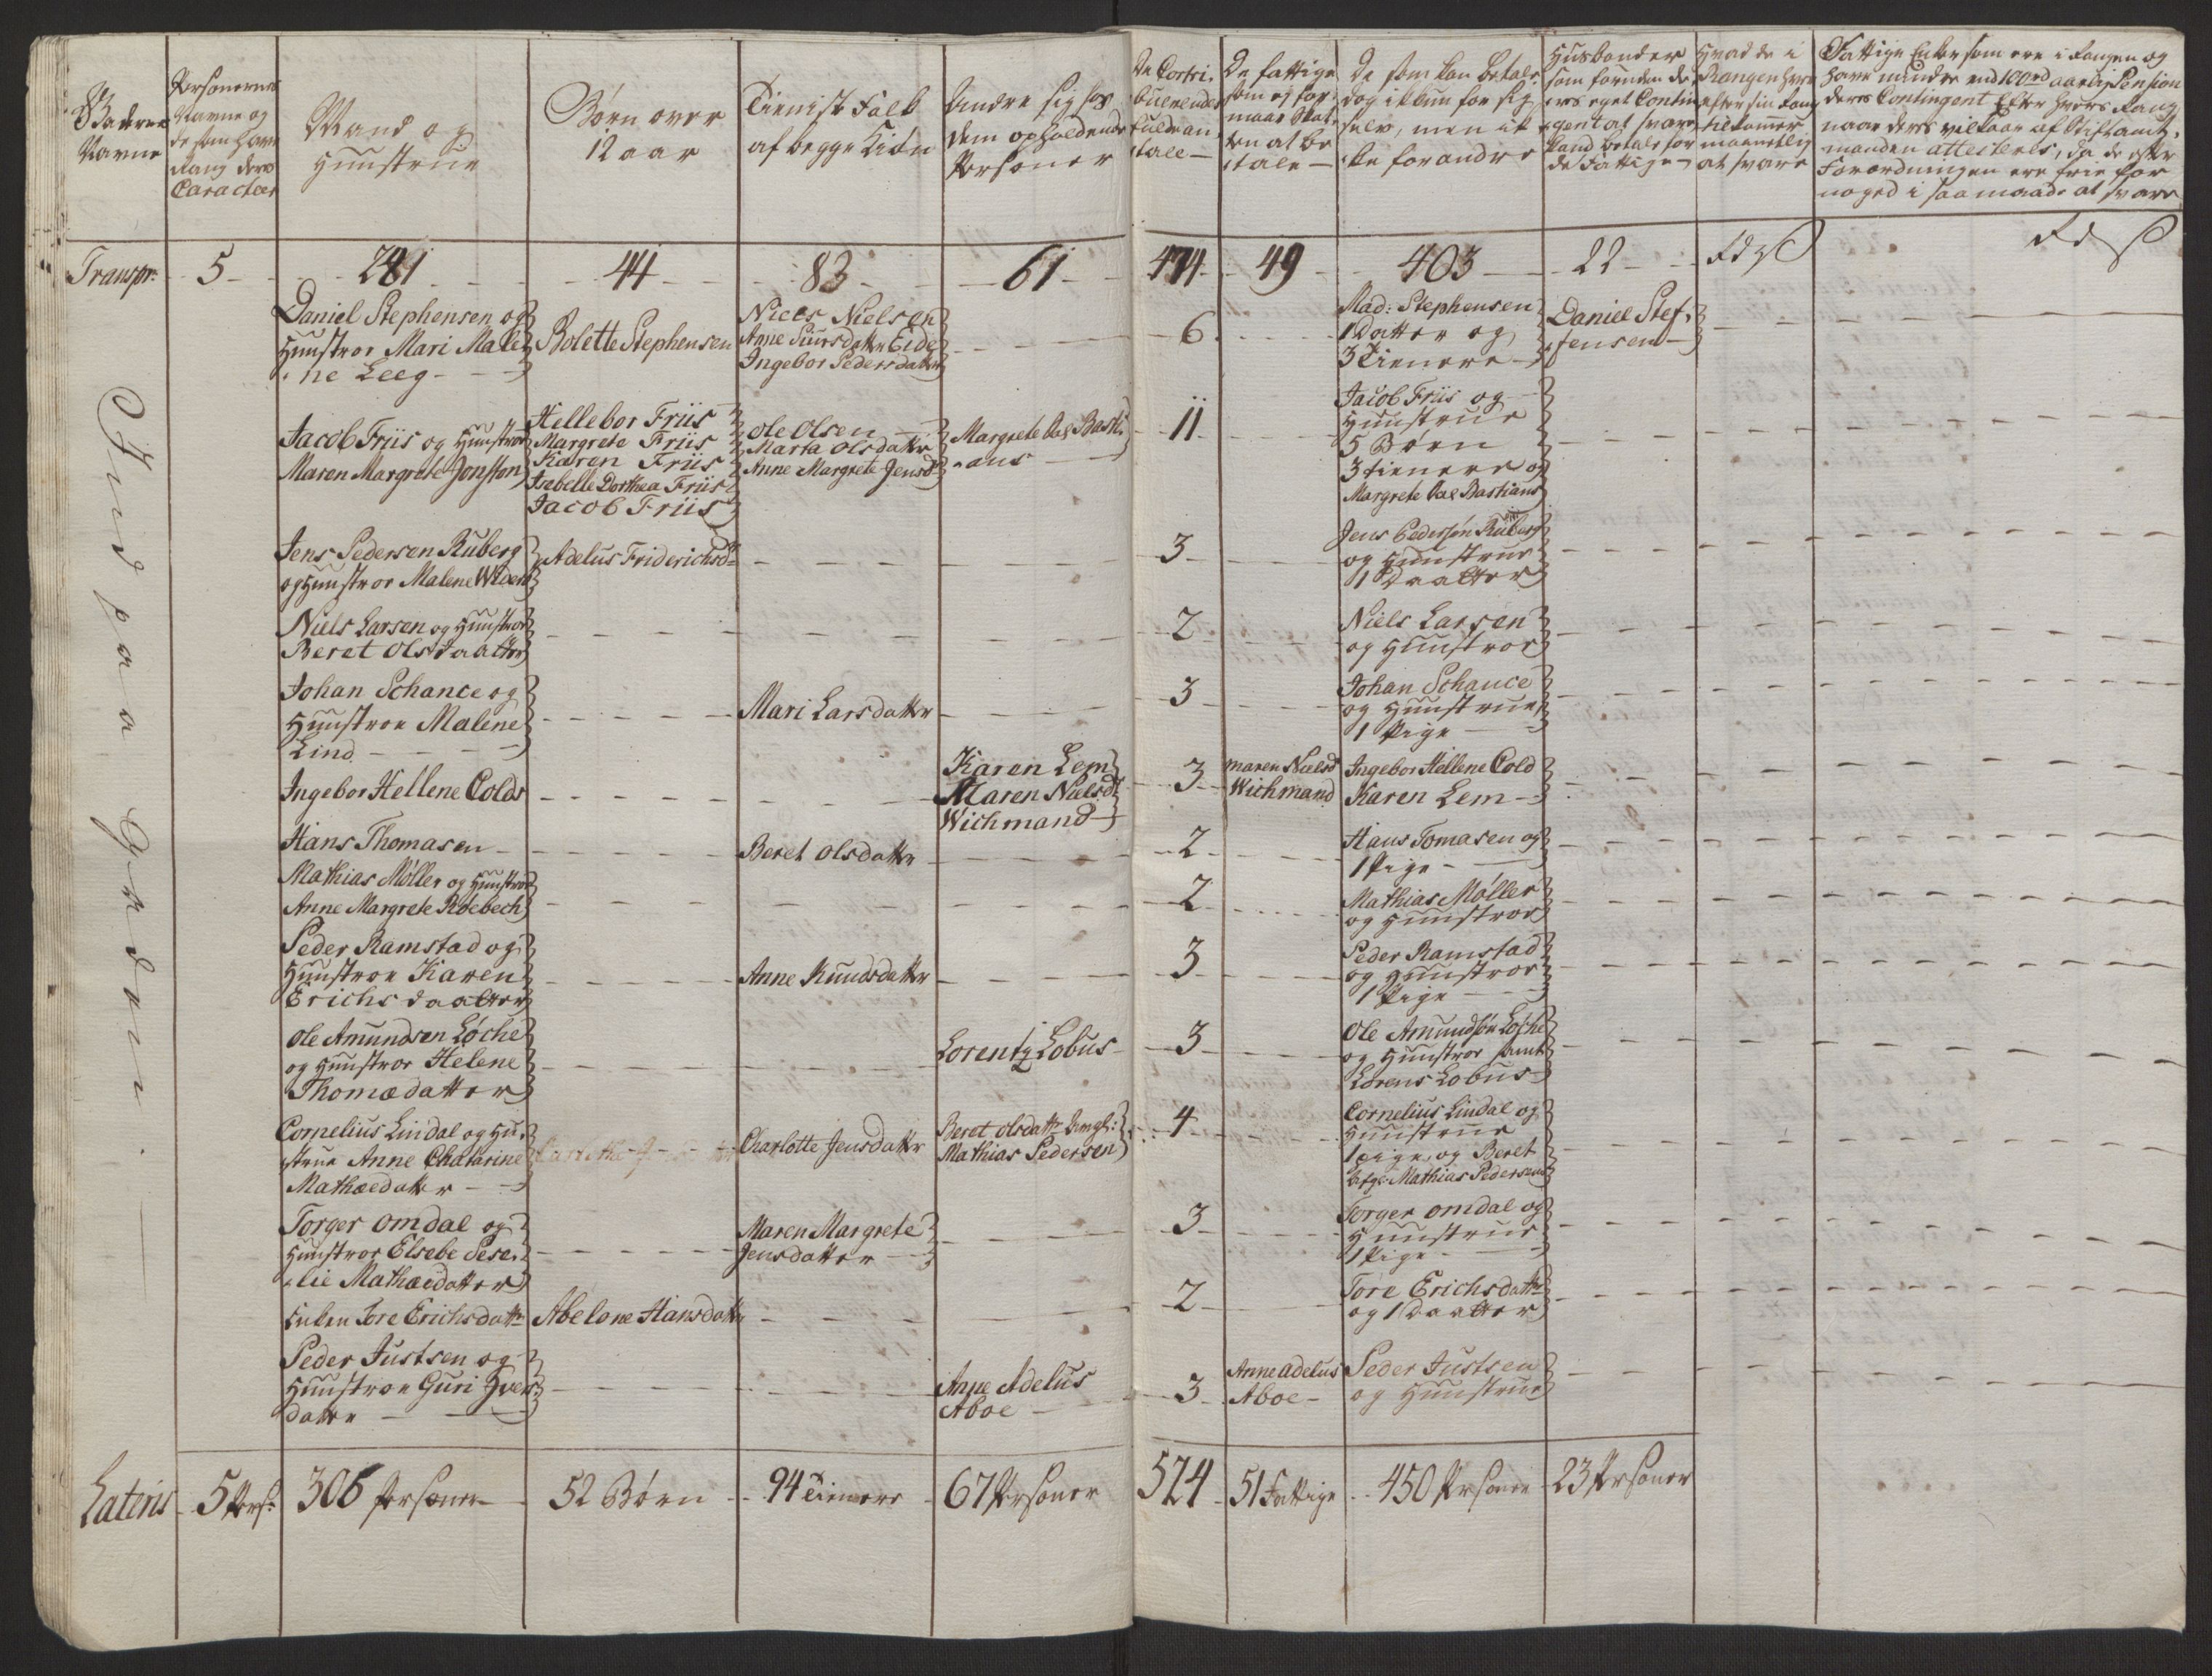 Gadernes
Navne
Personernes
Navne og
de som have
Rang deres
Caracteer
Mand og
Hunstrue
Børn over
12 aar
Tieniste Folk
af begge Kiøn
Andre sig hos
dem opholdende
Personer
De Contri-
buerende
fulde an-
tall
De fattige
som ej for-
maar Skat-
ten at be-
tale
De som kan betale
dog ikkun for sig
selv, men ik-
ke for andre
Husbonder
som foruden de-
res eget Contin-
gent at svare
kand betale for
de Fattige
Hvad de i
Rangen hver
efter sin Rang
tilkommer
maanetlig
at svare
Fattige Enker som ere i Rangen og
have mindre end 100 rd aarlig Pension
deres Contingent Efter hvers Rang
naar deres vilkaar af Stiftamt-
manden attesteres, da de efter
Forordningen ere frie for
noged i saa maade at svare
Transpr: 5 281 44 83 61 474 49 403 22
Ind paa Gaden
Daniel Stephensen og
Hunstroe Mari Male-
ne Leeg
Bolette Stephensen
Niels Nielsen
Anne Siursdatter Eide
Ingebor Pedersdatter
6
Mad: Stephensen
1 Datter og
3 Tienere
Daniel Stef-
fensen
Jacob Friis og Hunstroe
Maren Margrete Jonsson
Hellebor Friis
Margrete Friis
Karen Friis
Isebelle Dorthea Friis
Jacob Friis
Ole Olsen
Marta Olsdatter
Anne Margrete Jensd
Margrete Dal Basti-
ans
11
Jacob Friis og
Hunstrue
5 Børn
3 tienere og
Margrete Dal Bastians
Jens Pedersen Ruberg
og Hunstroe Malene Widers
Adelus Friderichsd
3
Jens Pedersøn Ruberg
og Hunstrue
1 Daatter
Niels Larsen og Hunstroe
Beret Olsdaatter
2
Niels Larsen
og Hunstroe
Johan Schance og
Hunstroe Malene
Lind
Mari Larsdatter
3
Johan Schance
og Hunstrue
1 Pige
Ingebor Hellene Colds
Karen Lem
Maren Nielsd
Wichmand
3
Maren Nielsd
Wichmand
Ingebor Hellene Cold
Karen Lem
Hans Thomasen
Beret Olsdatter
2
Hans Tomasen og
1 Pige
Mathias Møller og Hunstroe
Anne Margrete Roebech
2
Mathias Møller
og Hunstroe
Peder Ramstad og
Hunstroe Karen
Erichsdaatter
Anne Knudsdatter
3
Peder Ramstad
og Hunstroe
1 Pige
Ole Amundsen Løche
og Hunstroe Helene
Thomædatter
Lorentz Lobus
3
Ole Amundsøn Løche
og Hunstroe samt
Lorens Lobus
Cornelius Lindal og Hu-
strue Anne Chatarine
Mathæedatter
Charlotte Jensdatter
Beret Olsdatter
Mathias Pedersen
4
Cornelius Lindal og
Hunstrue
1 pige og Beret
Mathias Pedersens
Torger Omdal og
Hunstroe Elsebe Pese-
lie Mathæedatter
Maren Margrete
Jensdatter
3
Torger Omdal og
Hunstrue
1 Pige
Enken Tore Erichsdatter
Abelone Hansdatter
2
Tore Erichsdatter
og 1 Daatter
Peder Justsen og
Hunstroe Guri Iver-
datter
Anne Adelus
Aboe
3
Anne Adelus
Aboe
Peder Justsen
og Hunstrue
Lateris 5 Pers: 306 Personer 52 Børn 94 Tienere 67 Personer 524 51 Fattige 450 Personer 23 Personer